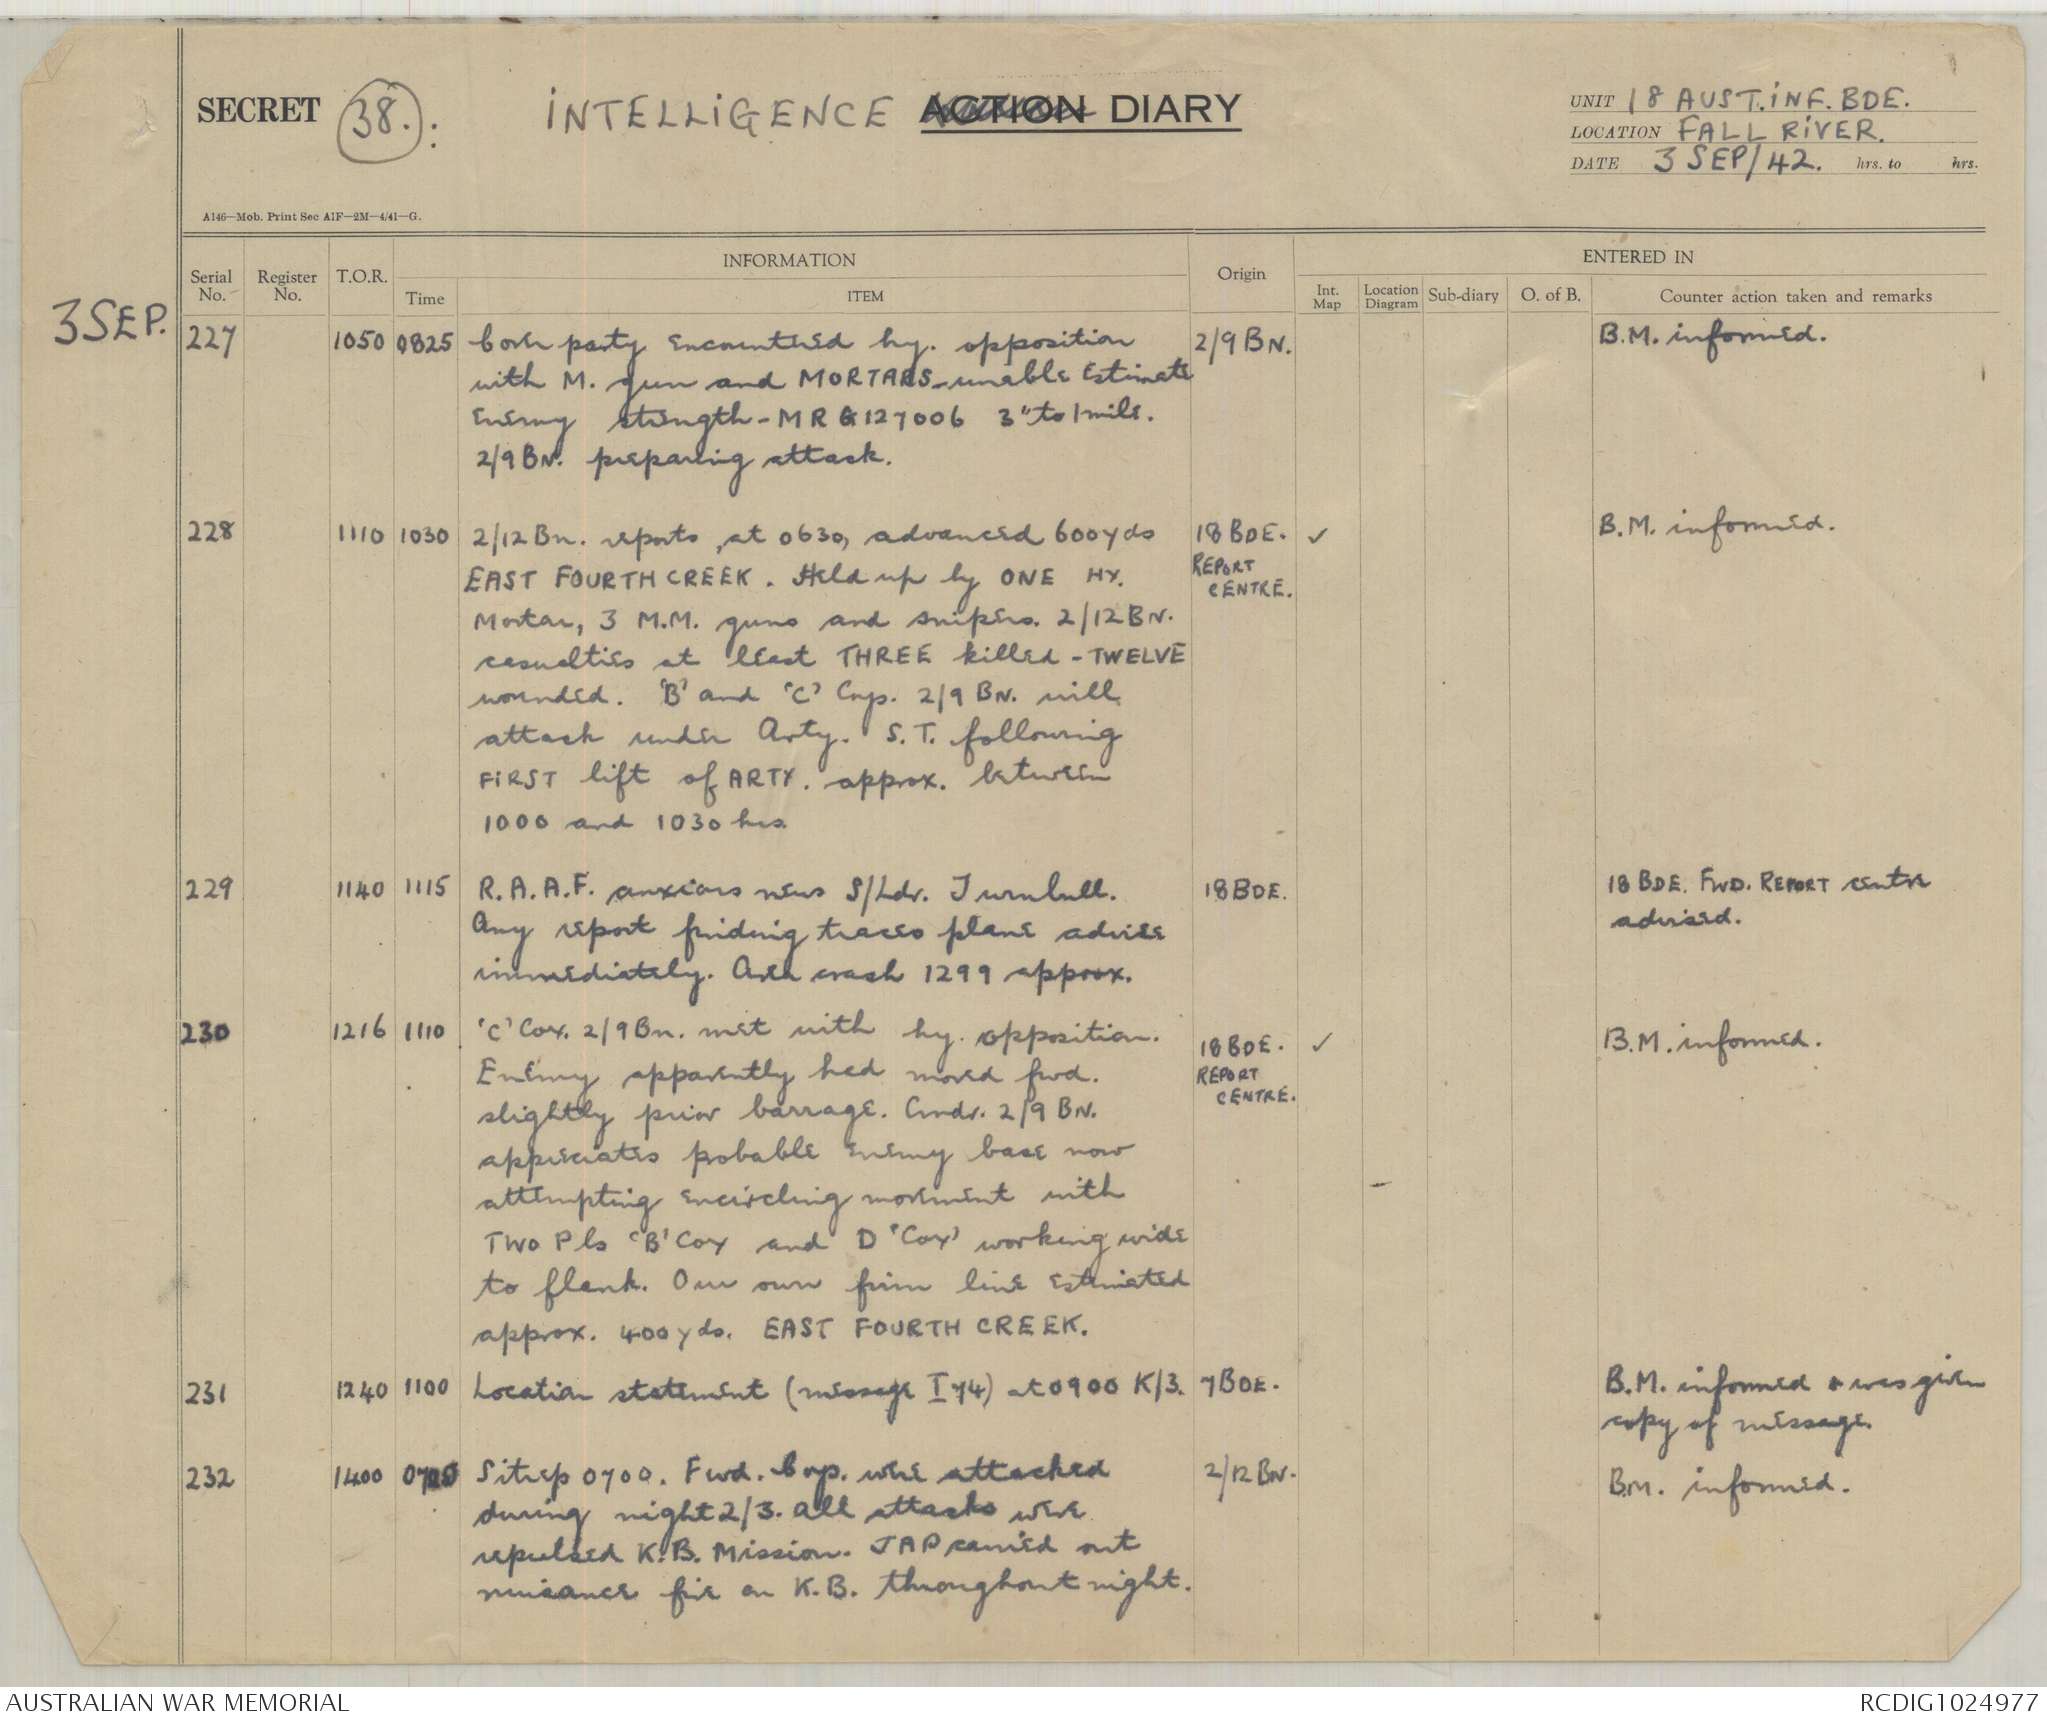 SECRET 38. : INTELLIGENCE ACTION DIARY
UNIT 18 AUST. INF. BDE.
LOCATION FALL RIVER.
DATE 3 SEP/42. hrs. to hrs.
A146—Mob. Print Sec AIF—2M—4/41—G.
Serial No. Register No. T.O.R. INFORMATION Time ITEM Origin ENTERED IN Int. Map Location Diagram Sub-diary O. of B. Counter action taken and remarks
3 SEP.
227 1050 0825 party encountered hy. opposition 2/9 BN. B.M. informed.
with M. gun and MORTARS - unable Estimate
Enemy strength - MR G127006 3" to 1 mile.
2/9 BN. preparing attack.
228 1110 1030 2/12 Bn. reports, at 0630, advanced 600 yds 18 BDE. REPORT CENTRE. ✓ B.M. informed.
EAST FOURTH CREEK. Held up by ONE HY.
Mortar, 3 M.M. guns and snipers. 2/12 BN.
casualties at least THREE killed - TWELVE
wounded. 'B' and 'C' Coys. 2/9 BN. will
attack under Arty. S.T. following
FIRST lift of ARTY. approx. between
1000 and 1030 hrs.
229 1140 1115 R.A.A.F. anxious news S/Ldr. Turnbull. 18 BDE. 18 BDE. FWD. REPORT centre
Any report finding traces plane advise advised.
immediately. Area crash 1299 approx.
230 1216 1110 'C' Coy. 2/9 Bn. met with hy. opposition. 18 BDE. REPORT CENTRE. ✓ B.M. informed.
Enemy apparently had moved fwd.
slightly prior barrage. Cmdr. 2/9 BN.
appreciates probable Enemy base now
attempting encircling movement with
TWO Pls 'B' Coy and D 'Coy' working wide
to flank. Our own firm line estimated
approx. 400 yds. EAST FOURTH CREEK.
231 1240 1100 Location statement (message I 74) at 0900 K/3. 7 BDE. B.M. informed & was given
copy of message.
232 1400 0700 Sitrep 0700. Fwd. Coys. were attacked 2/12 BN. B.M. informed.
during night 2/3. All attacks were
repulsed K.B. Mission. JAP carried out
nuisance fire on K.B. throughout night.
AUSTRALIAN WAR MEMORIAL RCDIG1024977